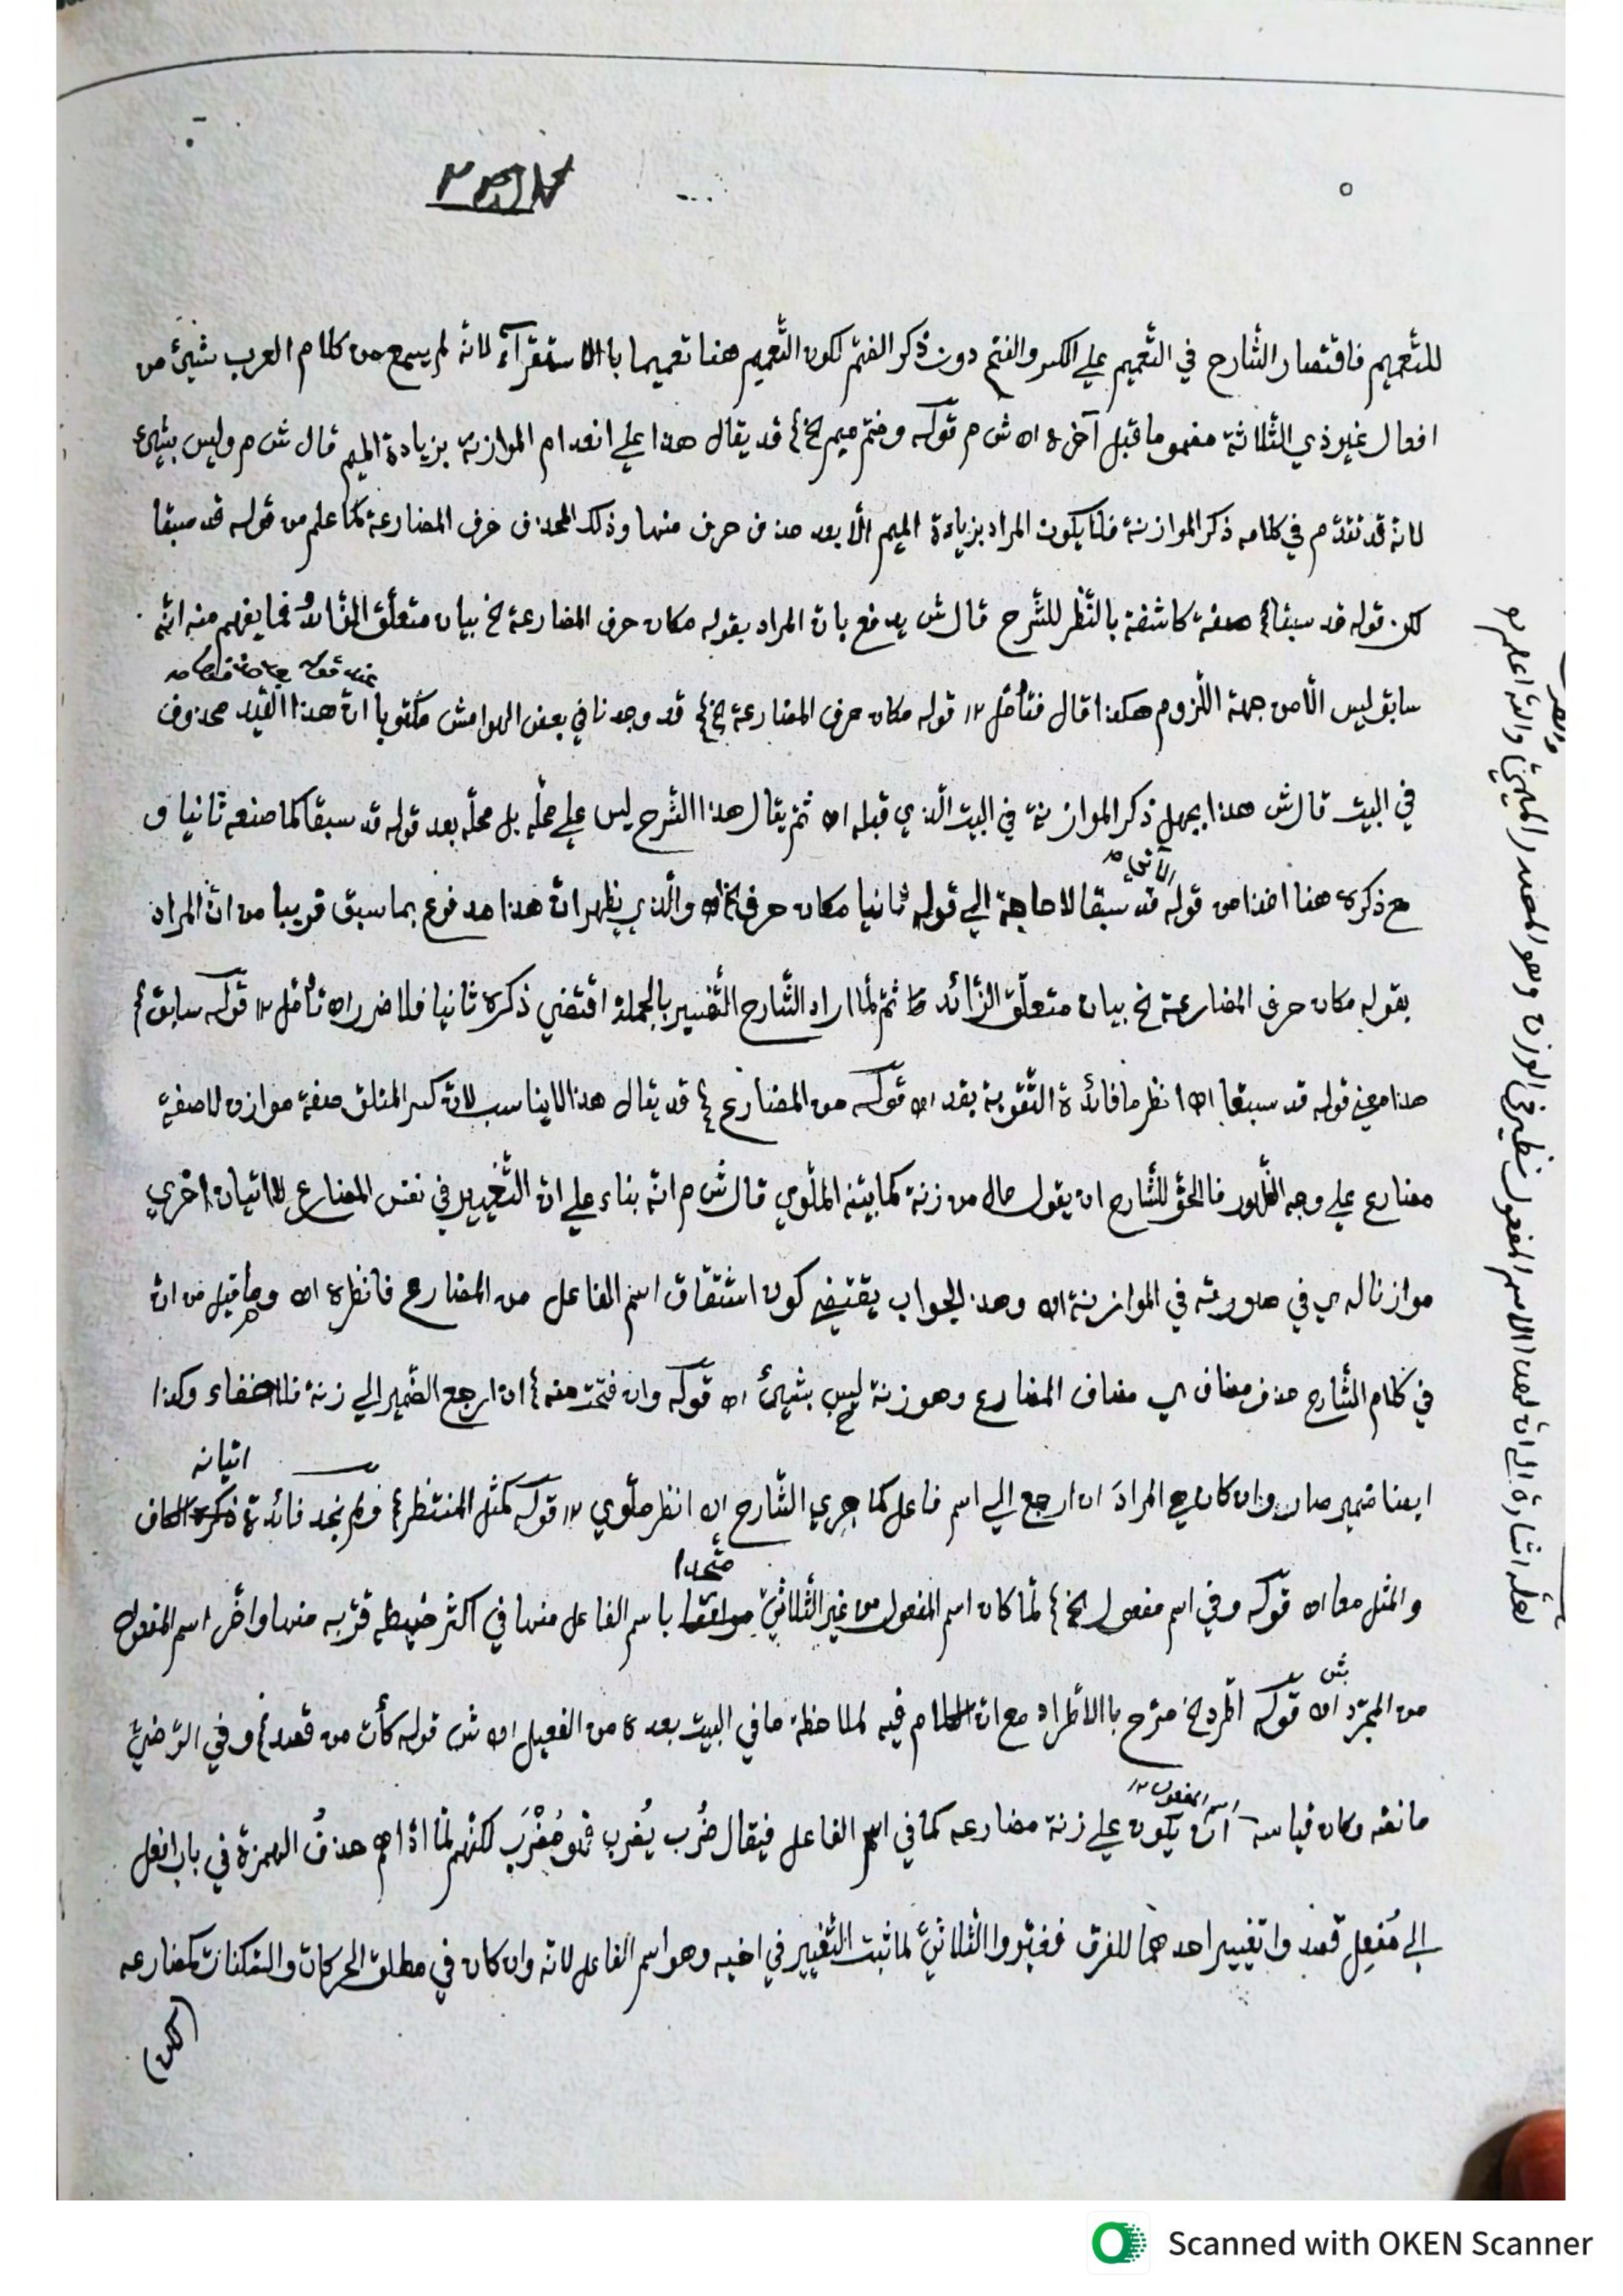 للتّعميم فاقتصار الشّارح في التّعميم علي الكسر والفتح دون ذكر الضّمّ لكون التّعميم هنا تعميما باالاستقرآء لانّه لم يسمع من كلام العرب شيئ من
افعال غير ذي الثّلاثة مضموما قبل آخره اه ش م قوله وضمّ ميم الخ قد يقال هذا علي انعدام الموازنة بزيادة الميم قال ش م وليس بشيئ
لانّه قد تقدّم في كلامه ذكر الموازنة فلا يكون المراد بزيادة الميم الّا بعد حذف حرف منها وذلك المحذوف حرف المضارعة كما علم من قوله قد سبقا
لكن قوله قد سبقا صفة كاشفة بالنّظر للشّرح قال ش يدفع بانّ المراد بقوله مكان حرف المضارعة الخ بيان متعلّق الزّائد فما يفهم منه انّه
سابق ليس الّا من جهة اللّزوم هكذا قال فتأمّل ١٢ قوله مكان حرف المضارعة الخ قد وجدنا في بعض الهوامش مكتوبا انّ هذا القيد محذوف
في البيت قال ش هذا يجهل ذكر الموازنة في البيت الّذي قبله اه ثمّ يقال هذا الشّرح ليس علي محلّه بل محلّه بعد قوله قد سبقا كما صنعه ثانيا و
مع ذكره هنا اخذا من قوله الآتي قد سبقا لا حاجة الي قوله ثانيا مكان حرف الخ اه والّذي يظهر انّ هذا مدفوع بما سبق قريبا من انّ المراد
بقوله مكان حرف المضارعة الخ بيان متعلّق الزّائد ثمّ لمّا اراد الشّارح التّفسير بالجملة اقتضي ذكره ثانيا فلا ضرر اه تأمّل ١٢ قوله سابق
هذا معني قوله قد سبقا اه انظر ما فائدة التّقوية بقد اه قوله من المضارع قد يقال هذا لا يناسب لانّ كسر المتلوّ صفة موازن لا صفة
مضارع علي وجه الظّهور فالحقّ للشّارح ان يقول حال من زنة كما بيّنه الملّوي قال ش م انّه بناء علي انّ التّغيير في نفس المضارع لا اتيان اخري
موازنا له ي في صورته في الموازنة اه وهذا الجواب يقتضي كون اشتقاق اسم الفاعل من المضارع فانظره اه وما قيل من انّ
في كلام الشّارح حذف مضاف ي مضاف المضارع وهو زنة ليس بشيئ اه قوله وان فتحت منه ان ارجع الضّمير الي زنة فلا خفاء وكذا
ايضا ضمير صار وان كان المرادَ ان ارجع الي اسم فاعل كما جري الشّارح اه انظر ملّوي ١٢ قوله كمثل المنتظر ولم نجد فائدة اتيانه الكاف
والمثل معا اه قوله وفي اسم مفعول الخ لمّا كان اسم المفعول من غير الثّلاثيّ متّحدا باسم الفاعل منها في اكثر ضبطه قرّبه منها واخّر اسم المفعول
من المجرّد اه ش قوله اطّرد الخ صرّح باالاطّراد مع انّ الكلام فيه لملاحظة ما في البيت بعده من الفعيل اه ش قوله كأت من قصد وفي الرّضيّ
ما نصّه وكان قياسه اسم المفعول ان يكون علي زنة مضارعه كما في اسم الفاعل فيقال ضُرب يُضرب فهو مُضْرَب لكنّهم لمّا ادّاهم حذفُ الهمزة في باب افعل
الي مُفعِل قصدوا تغيير احدهما للفرق فغيّروا الثّلاثيّ لما ثبت التّغيير في اخيه وهو اسم الفاعل لانّه وان كان في مطلق الحركات والسّكنات كمضارعه
(لكن)
لعلّه اشارة الي انّ لهذا الاسم المفعول نظير في الوزن وهو المصدر الميميّ والله اعلم
Scanned with OKEN Scanner